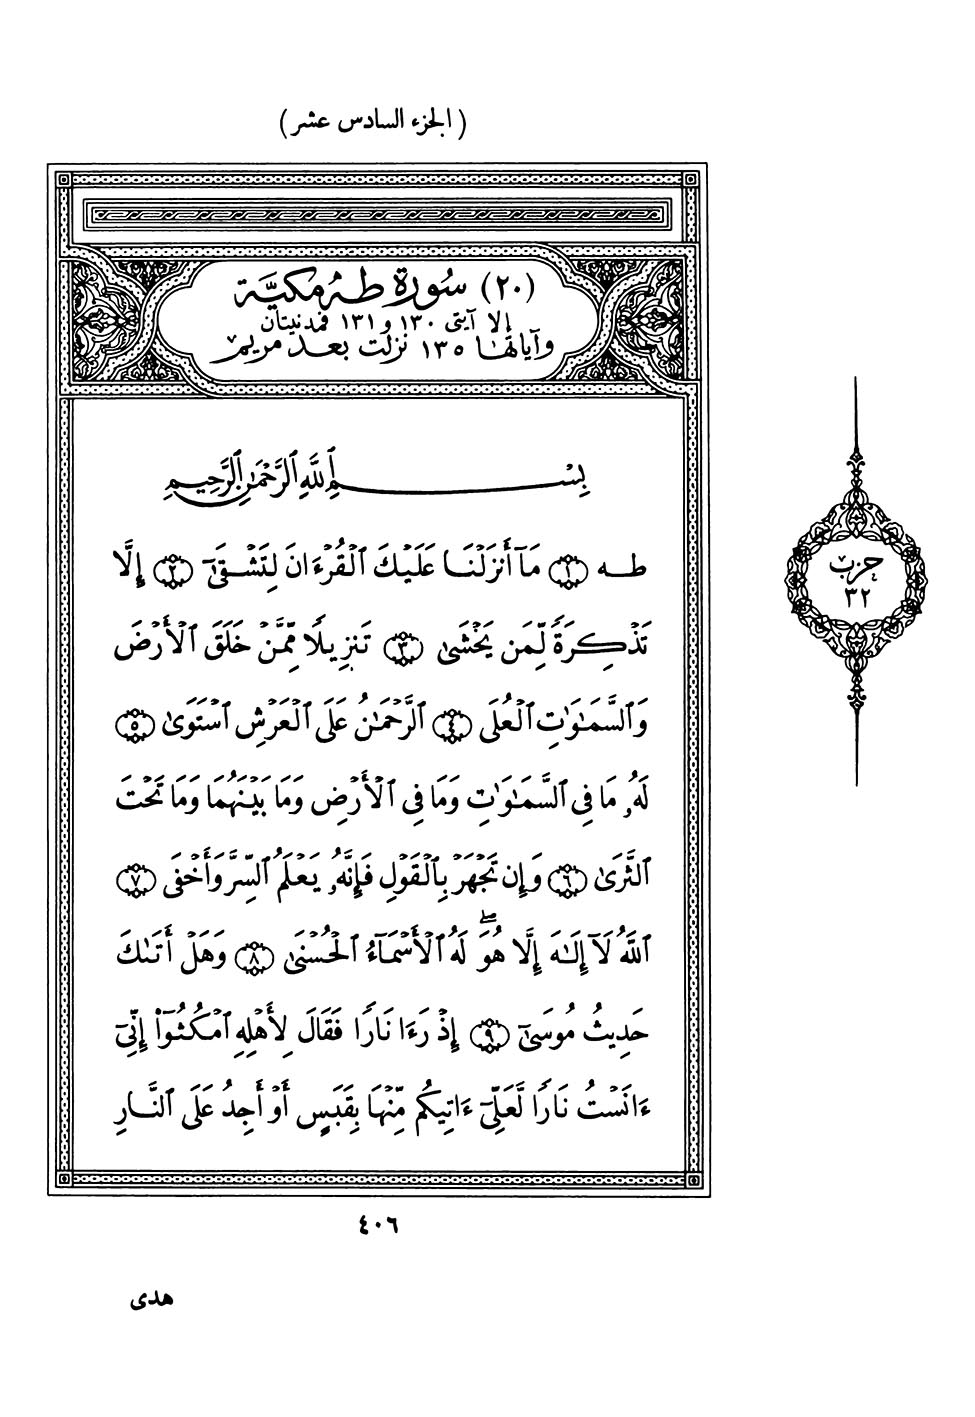 (الجزء السادس عشر)
(٢٠) سُورَة طه مكيَّة
إلا آيتي ١٣٠ و ١٣١ فمدنيتان
وآياتها ١٣٥ نزلت بعد مريم
بِسْمِ ٱللَّهِ ٱلرَّحْمَـٰنِ ٱلرَّحِيمِ
طه ١ مَآ أَنزَلْنَا عَلَيْكَ ٱلْقُرْءَانَ لِتَشْقَىٰٓ ٢ إِلَّا
تَذْكِرَةً لِّمَن يَخْشَىٰ ٣ تَنزِيلًا مِّمَّنْ خَلَقَ ٱلْأَرْضَ
وَٱلسَّمَـٰوَٰتِ ٱلْعُلَى ٤ ٱلرَّحْمَـٰنُ عَلَى ٱلْعَرْشِ ٱسْتَوَىٰ ٥
لَهُۥ مَا فِى ٱلسَّمَـٰوَٰتِ وَمَا فِى ٱلْأَرْضِ وَمَا بَيْنَهُمَا وَمَا تَحْتَ
ٱلثَّرَىٰ ٦ وَإِن تَجْهَرْ بِٱلْقَوْلِ فَإِنَّهُۥ يَعْلَمُ ٱلسِّرَّ وَأَخْفَى ٧
ٱللَّهُ لَآ إِلَـٰهَ إِلَّا هُوَ ۖ لَهُ ٱلْأَسْمَآءُ ٱلْحُسْنَىٰ ٨ وَهَلْ أَتَىٰكَ
حَدِيثُ مُوسَىٰٓ ٩ إِذْ رَءَا نَارًا فَقَالَ لِأَهْلِهِ ٱمْكُثُوٓا۟ إِنِّىٓ
ءَانَسْتُ نَارًا لَّعَلِّىٓ ءَاتِيكُم مِّنْهَا بِقَبَسٍ أَوْ أَجِدُ عَلَى ٱلنَّارِ
حزب
٣٢
٤٠٦
هدى